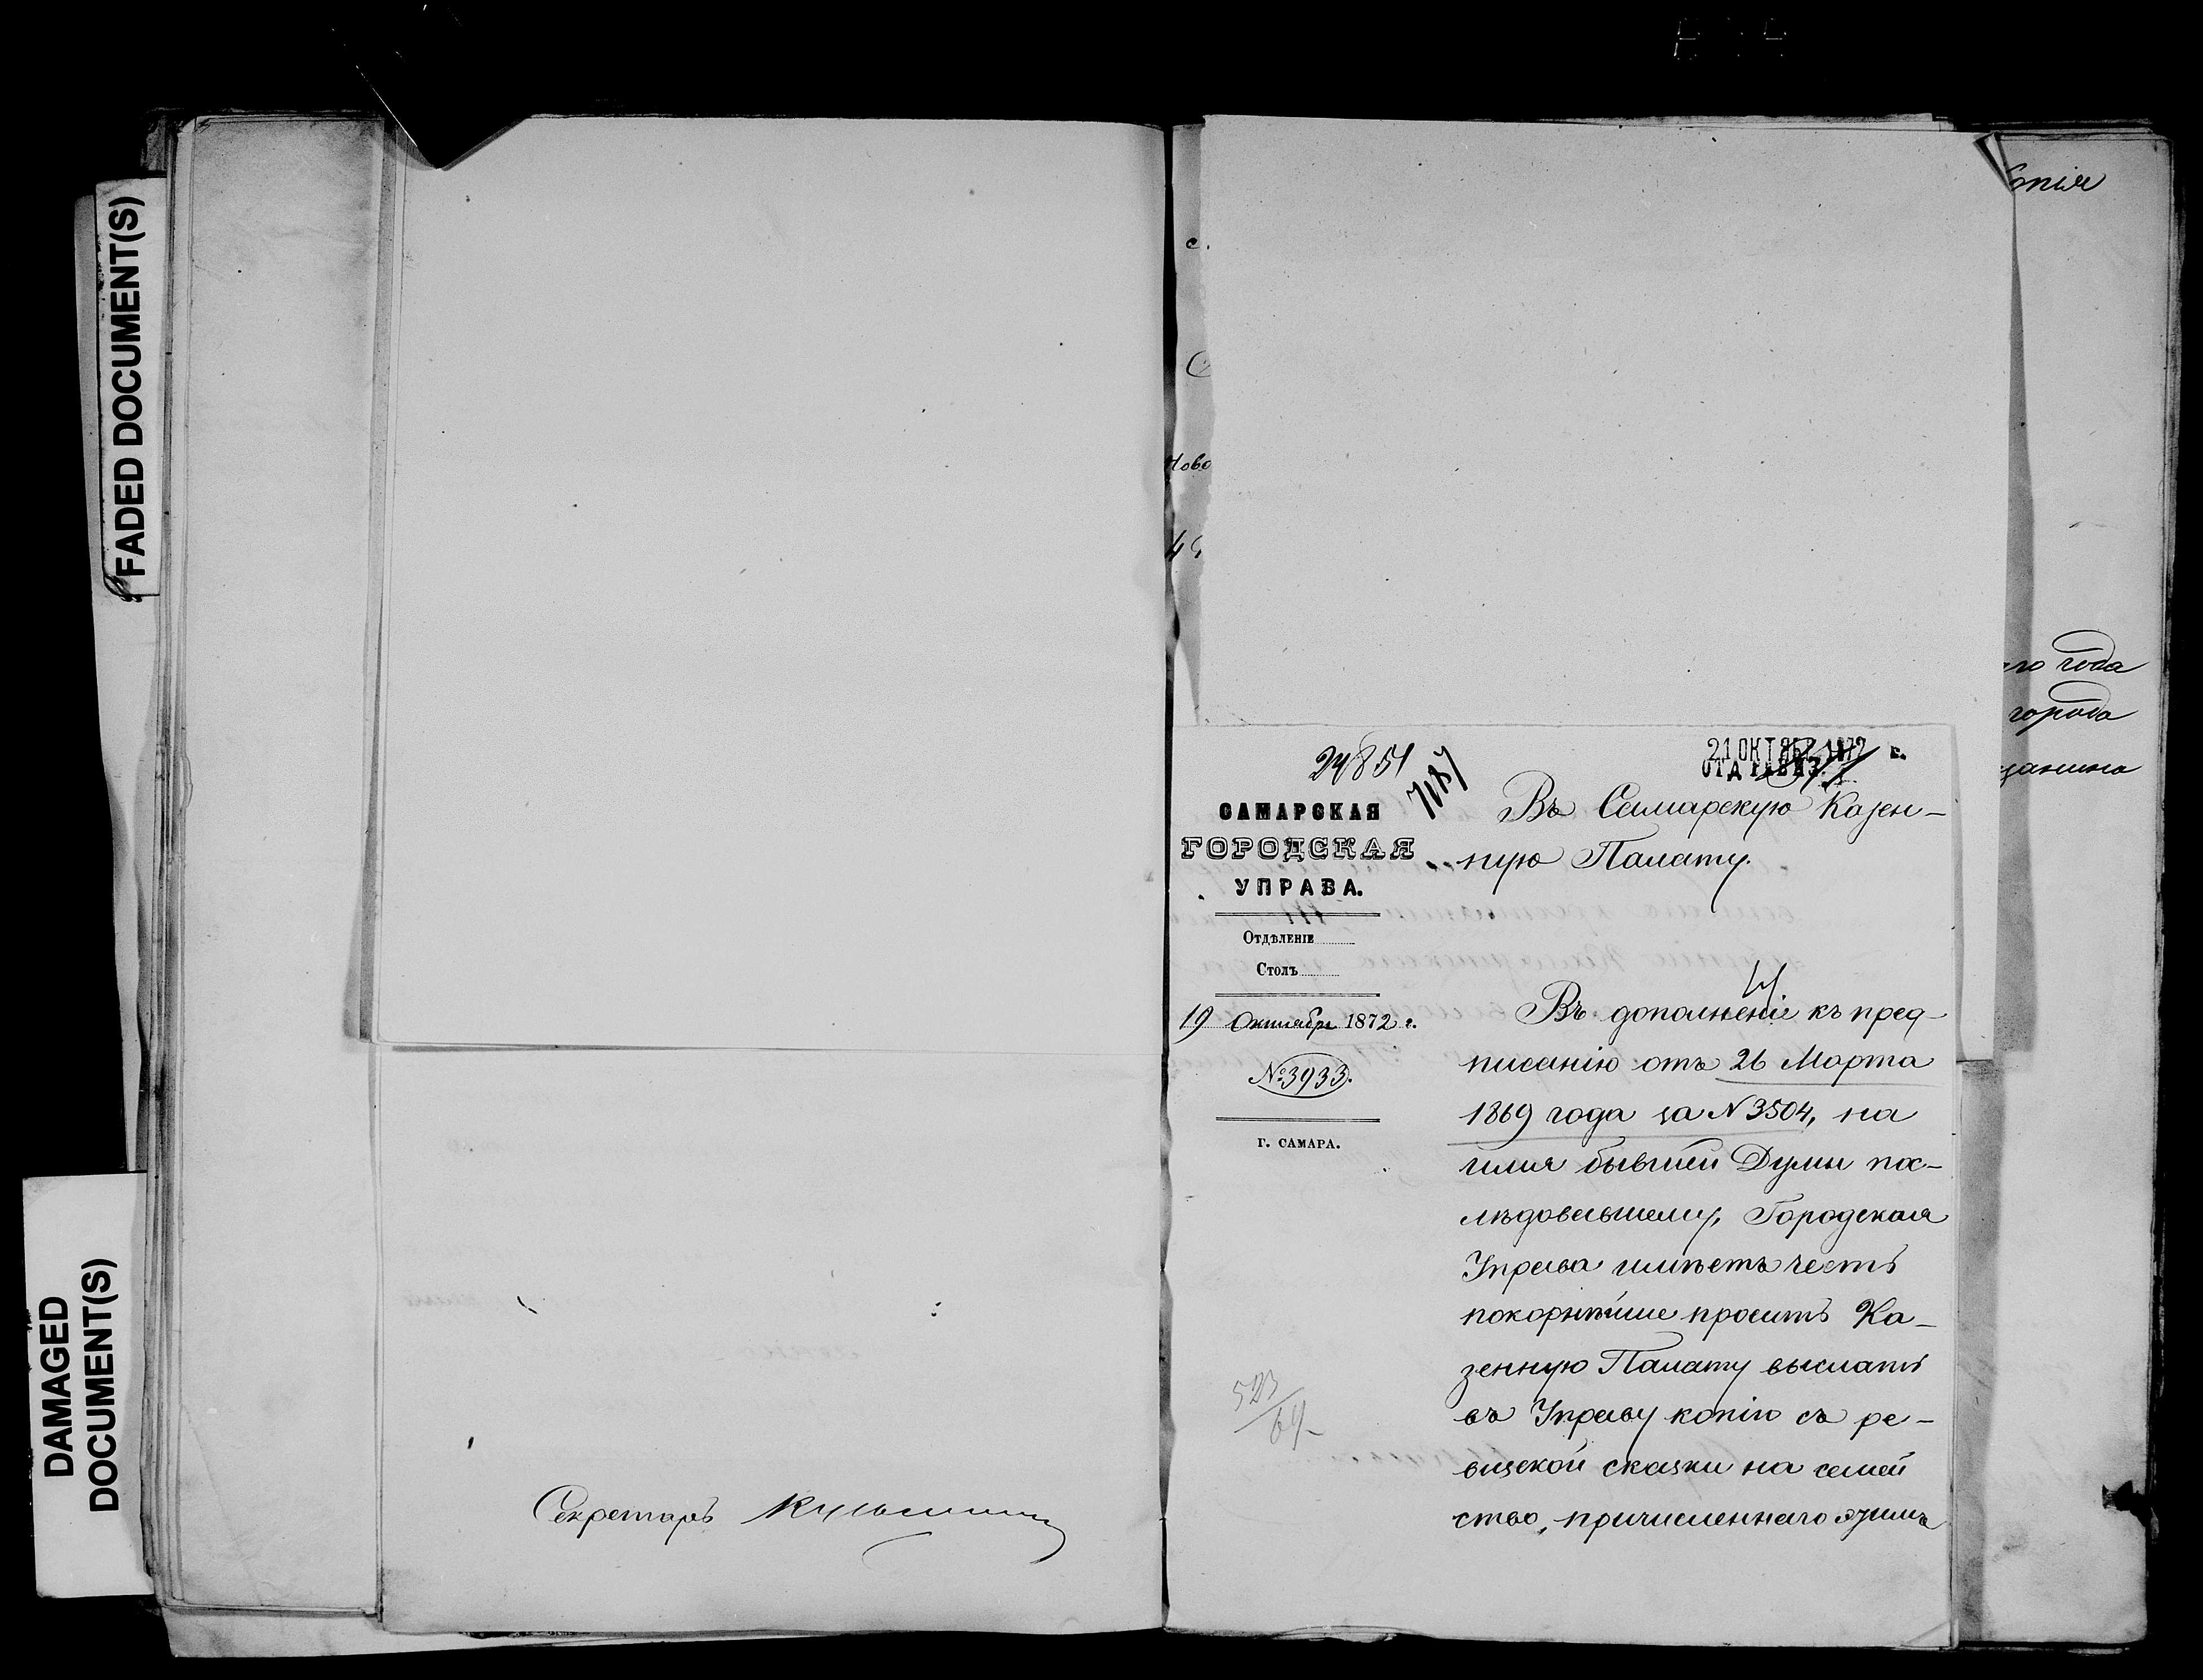 FADED DOCUMENT(S)
DAMAGED
DOCUMENT(S)
Секретарь
с.
Ново
24851
7187
21 ОКТЯБР. 1872 г.
САМАРСКАЯ
ГОРОДСКАЯ
УПРАВА.
Отдѣленіе
Столъ
19 Октября 1872 г.
№ 3933.
Г. САМАРА.
523/64
Въ Самарскую Казен-
ную Палату.
Въ дополненіе къ пред-
писанію отъ 26 Марта
1869 года за N 3504, на
имя бывшей Думы пос-
лѣдовавшему, Городская
Управа имѣетъ честь
покорнѣйше просить Ка-
зенную Палату выслать
въ Управу копію съ ре-
визской сказки на семей
ство, причисленнаго этимъ
Копія
го года
города
щанина